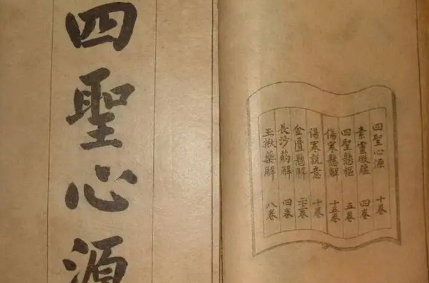 四聖心源
四聖心源 十卷
素靈微蘊 四卷
四聖懸樞 五卷
傷寒懸解 十五卷
傷寒説意 十卷
金匱懸解 二十二卷
長沙葯解 四卷
玉楸藥解 八卷